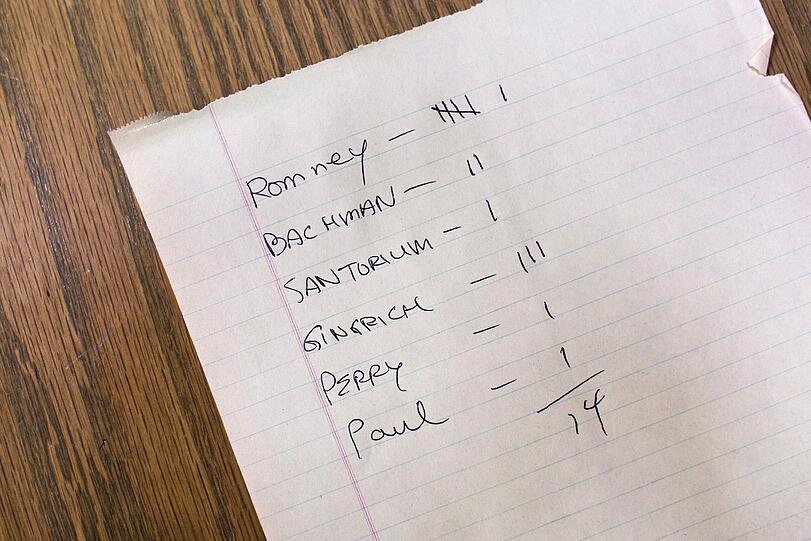 Romney — 𝍸 I
BACHMAN — II
SANTORIUM — I
GINGRICH — III
PERRY — I
Paul — I
14